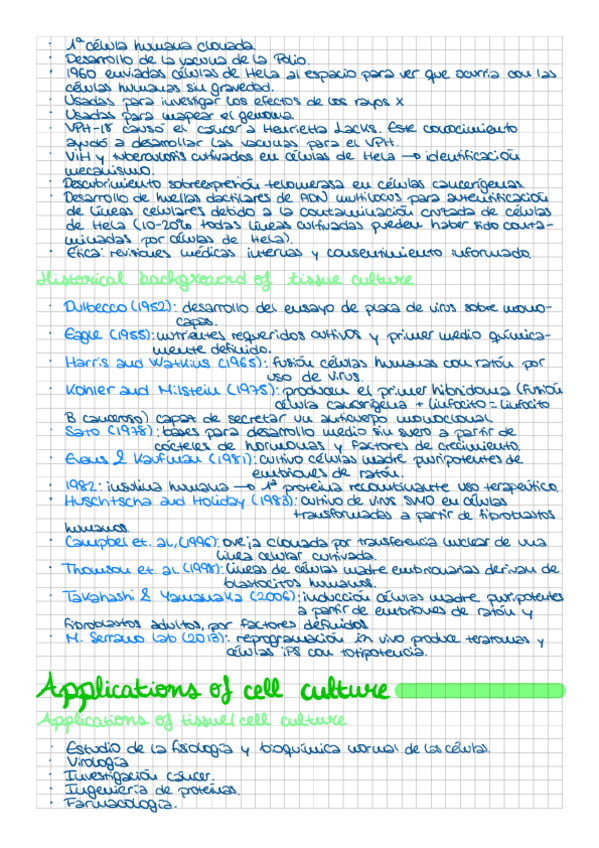 · 1ª célula humana clonada.
· Desarrollo de la vacuna de la Polio.
· 1960 enviadas células de Hela al espacio para ver que ocurría con las
células humanas sin gravedad.
· Usadas para investigar los efectos de los rayos X
· Usadas para mapear el genoma.
· VPH-18 causó el cáncer a Henrietta Lacks. Este conocimiento
ayudó a desarrollar las vacunas para el VPH.
· VIH y tuberculosis cultivados en células de Hela → identificación
mecanismo.
· Descubrimiento sobreexpresión telomerasa en células cancerígenas.
· Desarrollo de huellas dactilares de ADN multilocus para autentificación
de líneas celulares debido a la contaminación cruzada de células
de Hela (10-20% todas líneas cultivadas pueden haber sido conta-
minadas por células de Hela).
· Ética: revisiones médicas internas y consentimiento informado.
Historical background of tissue culture
· Dulbecco (1952): desarrollo del ensayo de placa de virus sobre mono-
capas.
· Eagle (1955): nutrientes requeridos cultivos y primer medio química-
mente definido.
· Harris and Watkins (1965): fusión células humanas con ratón por
uso de virus.
· Kohler and Milstein (1975): producen el primer hibridoma (fusión
célula cancerígena + linfocito = linfocito
B canceroso) capaz de secretar un anticuerpo monoclonal.
· Sato (1978): bases para desarrollo medio sin suero a partir de
cócteles de hormonas y factores de crecimiento.
· Evans & Kaufman (1981): cultivo células madre pluripotentes de
embriones de ratón.
· 1982: insulina humana → 1ª proteína recombinante uso terapéutico.
· Huschtscha and Holiday (1983): cultivo de virus SV40 en células
transformadas a partir de fibroblastos
humanos.
· Campbel et. al, (1996): oveja clonada por transferencia nuclear de una
línea celular cultivada.
· Thomson et. al (1998): líneas de células madre embrionarias derivan de
blastocitos humanos.
· Takahashi & Yamanaka (2006): inducción células madre puripotentes
a partir de embriones de ratón y
fibroblastos adultos, por factores definidos
· M. Serrano Lab (2013): reprogramación in vivo produce teratomas y
células iPS con totipotencia.
Applications of cell culture
Applications of tissue/cell culture
· Estudio de la fisiología y bioquímica normal de las células.
· Virología
· Investigación cáncer.
· Ingeniería de proteínas.
· Farmacología.